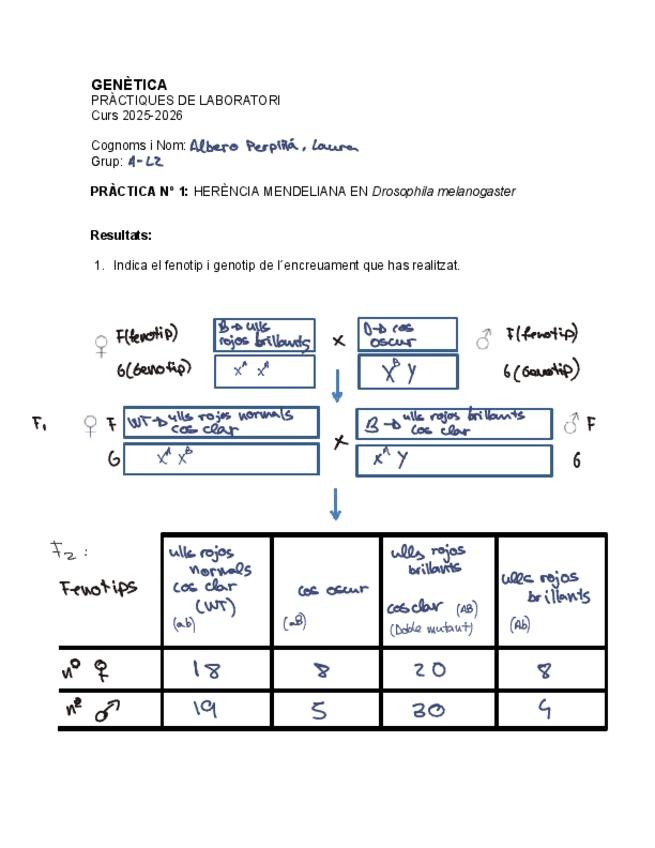 GENÈTICA
PRÀCTIQUES DE LABORATORI
Curs 2025-2026
Cognoms i Nom: Albero Perpiñá, Laura
Grup: A-L2
PRÀCTICA Nº 1: HERÈNCIA MENDELIANA EN Drosophila melanogaster
Resultats:
1. Indica el fenotip i genotip de l´encreuament que has realitzat.
♀ F(fenotip) B→ulls rojos brillants × O→cos oscur ♂ F(fenotip)
G(Genotip) Xᴬ Xᴬ Xᴮ Y G(Genotip)
F₁ ♀ F WT→ulls rojos normals cos clar × B→ulls rojos brillants cos clar ♂ F
G Xᴬ Xᴮ Xᴬ Y G
F₂:
Fenotips
ulls rojos normals cos clar (WT) (ab)
cos oscur (aB)
ulls rojos brillants cos clar (AB) (Doble mutant)
ulls rojos brillants (Ab)
nº ♀ 18 8 20 8
nº ♂ 19 5 30 4